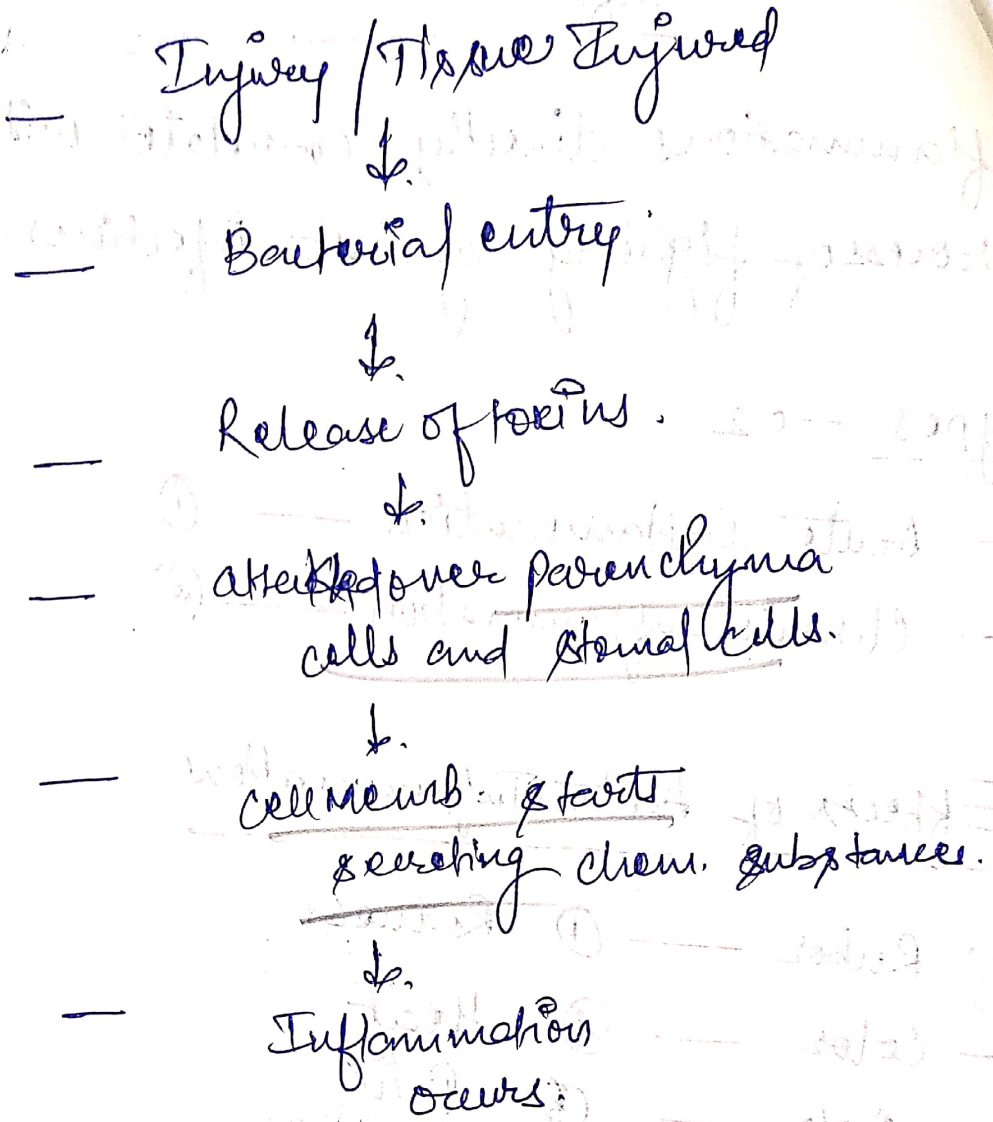 Injury / Tissue Injured
↓
Bacterial entry.
↓
Release of toxins.
↓
attacked over parenchyma
cells and stomal cells.
↓
cell memb. starts
secreting chem. substances.
↓
Inflammation
occurs.